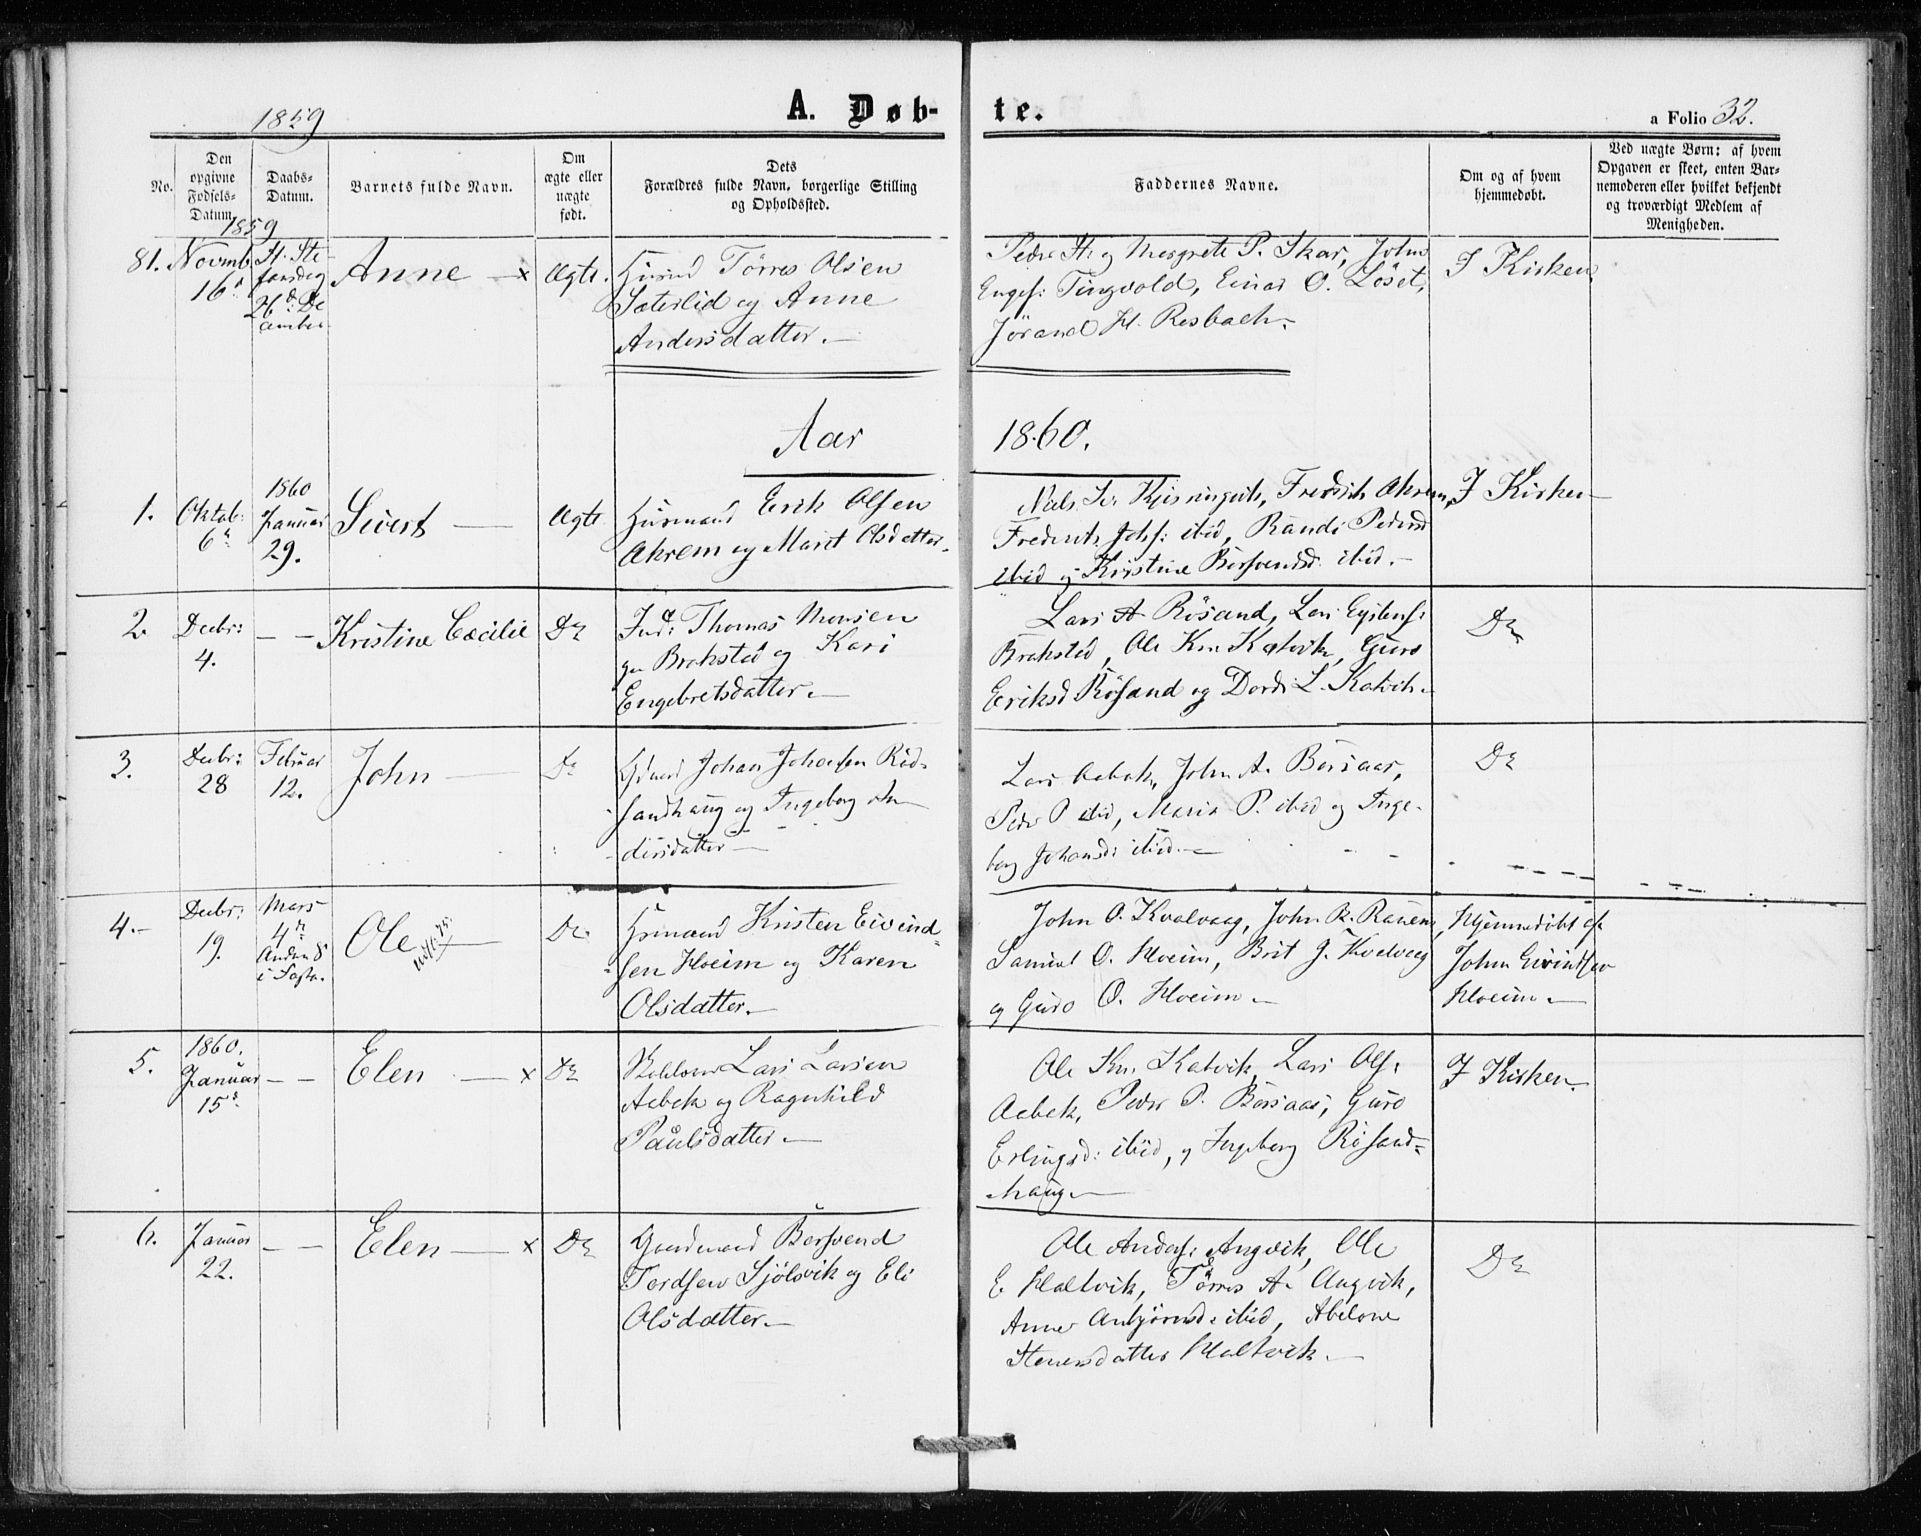 1859
A. Døb-
te.
a Folio 32.
No.
Den opgivne Fødsels-Datum.
Daabs-Datum.
Barnets fulde Navn.
Om ægte eller uægte født.
Dets Forældres fulde Navn, borgerlige Stilling og Opholdssted.
Faddernes Navne.
Om og af hvem hjemmedøbt.
Ved uægte Børn: af hvem Opgaven er skeet, enten Barnemoderen eller hvilket bekjendt og troværdigt Medlem af Menigheden.
1859
81. Novmb. 16
St. Ste-
fansdag
26d De
cember
Anne — x
Ægte.
Tørres Olsen
Sæterlid og Anne
Andersdatter. —
Peder H. og Margrete P. Skar, John
Engef: Tingvold, Einar O. Løset,
Jørand H. Resbach.
I Kirken
Aar
1860.
1. Oktob: 6
1860
Januar
29.
Sivert —
Ægte
Husmand Erik Olsen
Ahrem og Marit Olsdatter.
Niels Frederik Ahrem,
Frederik Johs: ibid, Randi Pedersd
ibid og Kristine Børsvendsd. ibid. —
I Kirken —
2 Decbr: 4.
— —
Kristine Cæcilie
Do
Ind: Thomas Monsen
Brakstad og Kari
Engebretsdatter. —
Lars A. Røsand, Lars
Brakstad, Ole Kn. Katvik, Guro
Eriksd Røsand og Dordi L. Katvik.
Do
3. Decbr: 28
Februar
12.
John —
Do
Johan Johansen Rød-
sandhaug og Ingeborg An-
dersdatter —
Lars Aabak, John A. Børsaas,
Peder P ibid, Maria P. ibid og Inge-
borg Johansd: ibid. —
Do
4. — Decbr: 19.
Mars
4de
Anden S
i Fasten
Ole —
Do
Husmand Kristen Eivind-
sen Hoeim og Karen
Olsdatter. —
John O. Kvalvaag, John R. Ranem,
Samuel O. Hoeim, Brit J. Kvalvaag
og Guro O. Hoeim —
Hjemmedøbt af
John Eivindsen
Hoeim. —
5. 1860.
Januar
15
— —
Elen — x
Do
Lars Larsen
Aabak og Ragnhild
Paulsdatter. —
Ole Kn. Katvik, Lars Ols:
Aabak, Peder P. Børsaas, Guro
Erlingsd: ibid, og Ingeborg Røsand-
haug —
I Kirken.
6. Januar
22.
— —
Elen — x
Do
Gaardmand Børsvend
Tordsen Sjølsvik og Eli
Olsdatter. —
Ole Anders: Angvik, Ole
E. Haltvik, Tørres A. Angvik,
Anne Anbjørnsd: ibid, Abelone
Stenersdatter Haltvik. —
Do